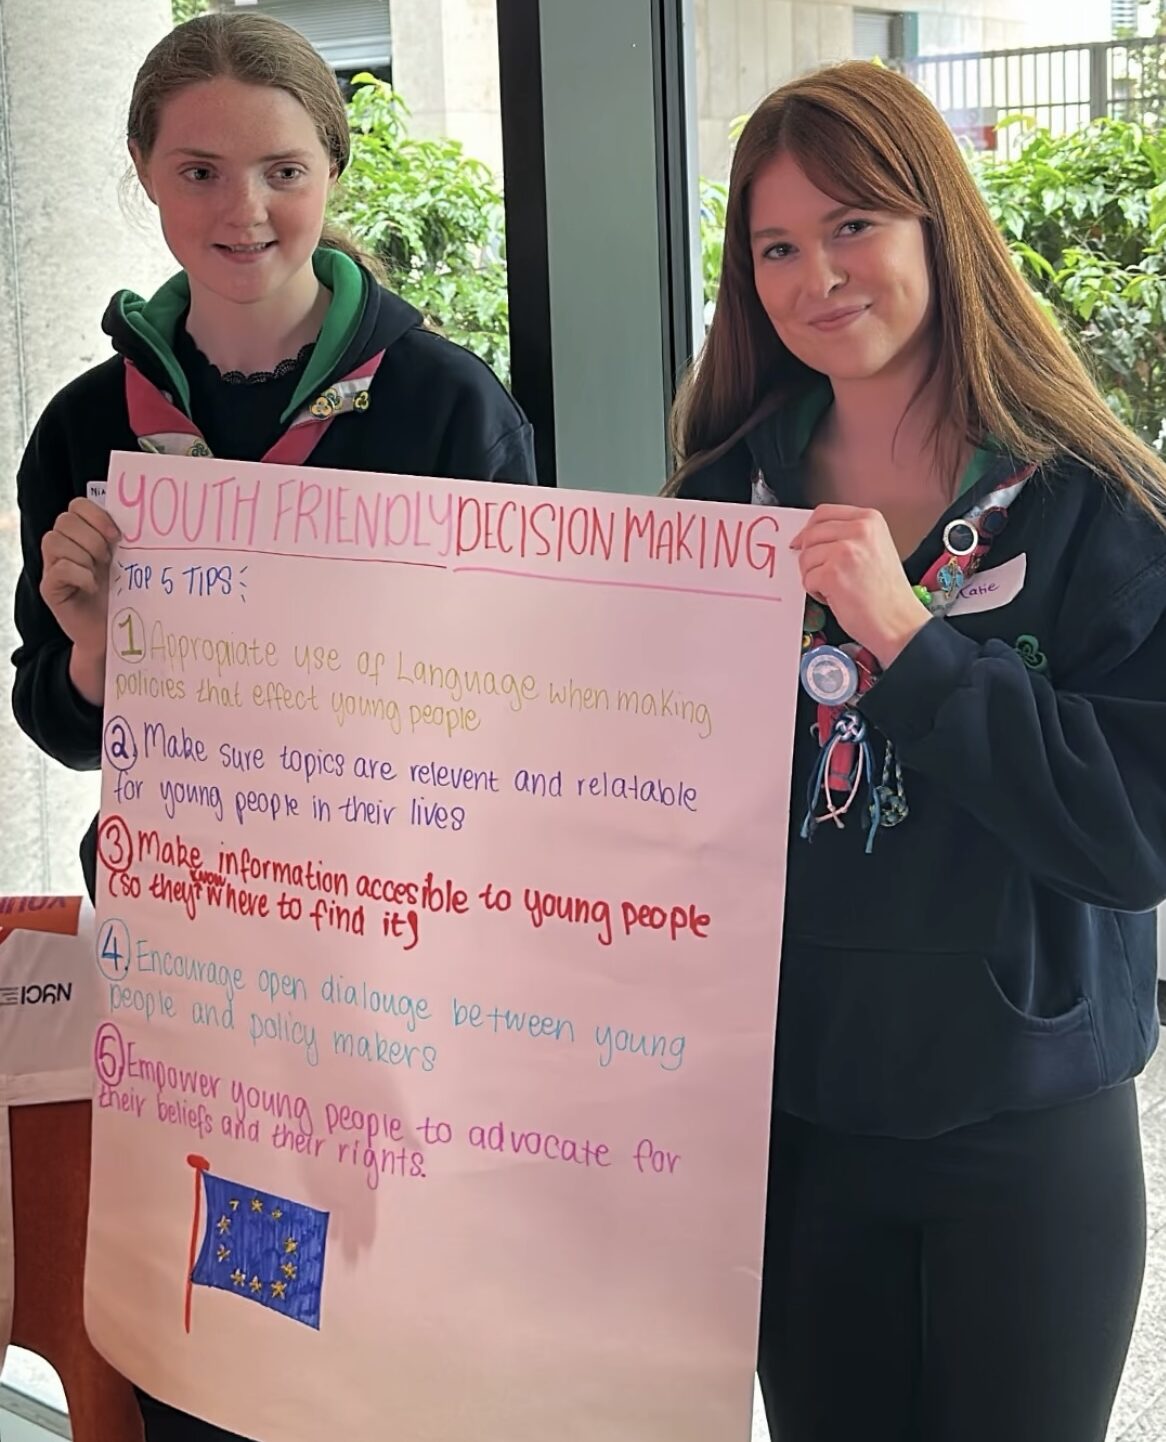 YOUTH FRIENDLY DECISION MAKING
TOP 5 TIPS
1 Appropiate use of Language when making
policies that effect young people
2 Make sure topics are relevent and relatable
for young people in their lives
3 Make information accesible to young people
(so they know where to find it)
4. Encourage open dialouge between young
people and policy makers
5 Empower young people to advocate for
their beliefs and their rights.
Katie
NYCI